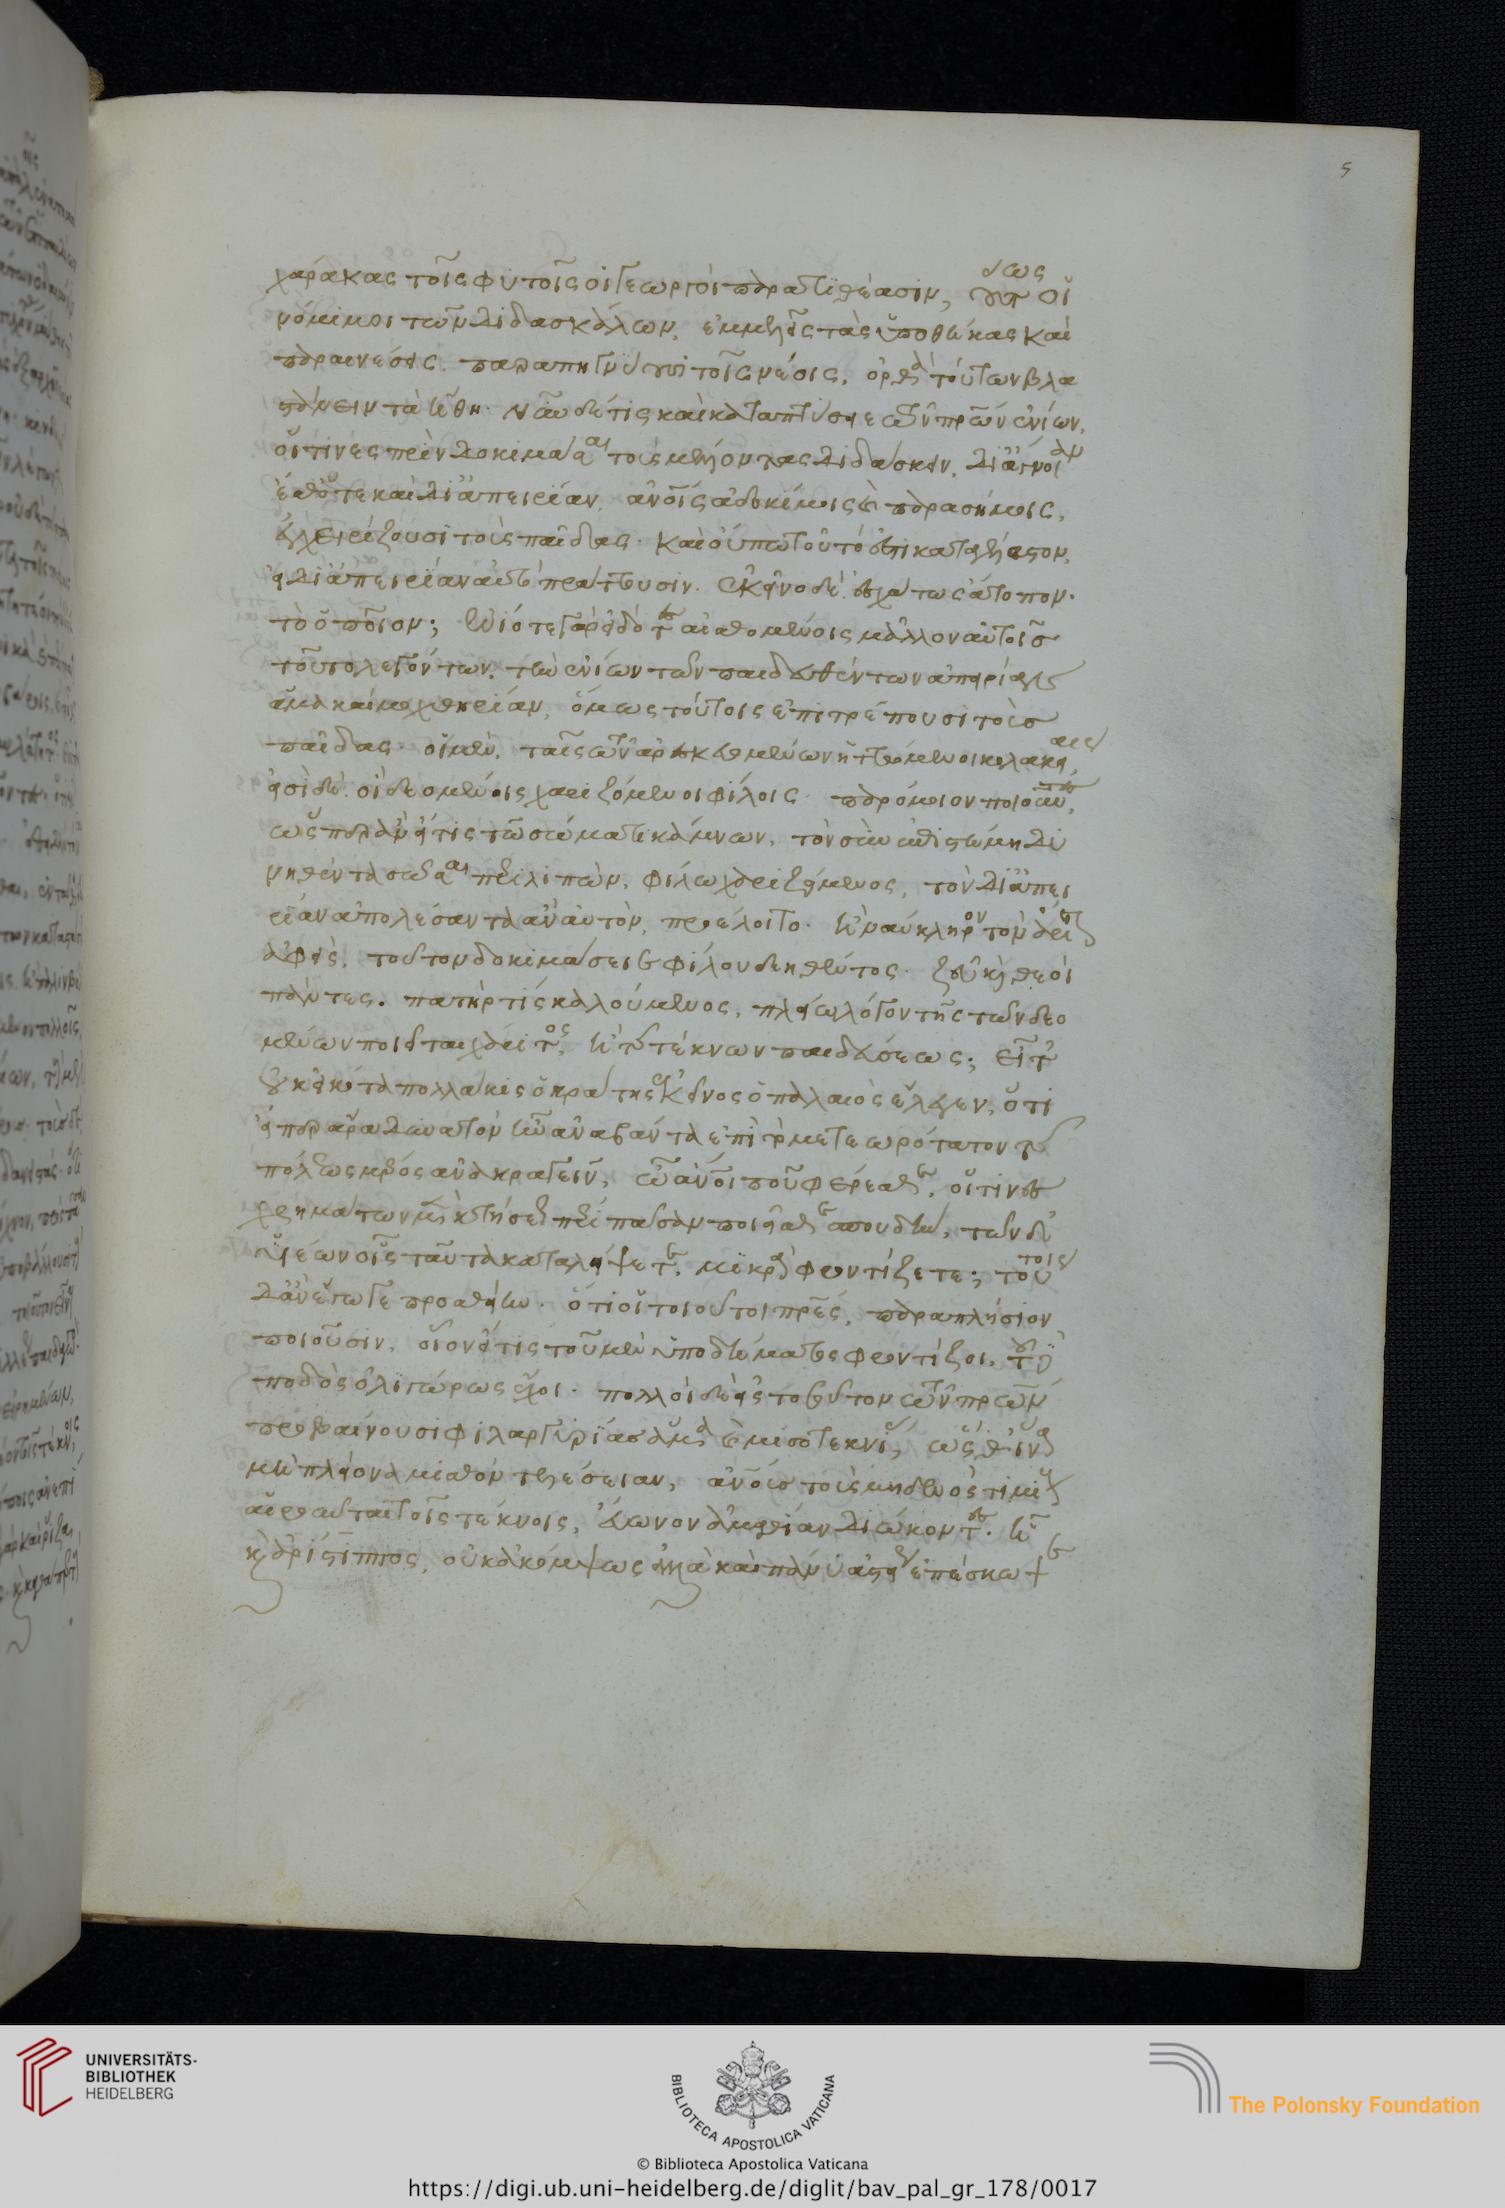 5
χάρακας τοῖς φυτοῖς οἱ γεωργοὶ παρατιθέασιν, οὕτως οἱ
νόμιμοι τῶν διδασκάλων, ἐμμελεῖς τὰς ὑποθήκας καὶ
παραινέσεις παραπηγνύουσι τοῖς νέοις, ὀρθὰ τούτων βλα
στάνειν τὰ ἤθη. νῦν δέ τις καὶ καταπτύσειε τῶν πρῶν ἐνίων,
οἵτινες πρὶν δοκιμάσαι τοὺς μέλλοντας διδάσκειν, δι' ἄγνοιαν
ἔσθ' ὅτε καὶ δι' ἀπειρίαν, ἀνοις ἀδοκίμοις καὶ παρασήμοις,
ἐγχειρίζουσι τοὺς παῖδας. καὶ οὔπω τοῦτό ἐστι καταγέλαστον,
εἰ δι' ἀπειρίαν αὐτὸ πράττουσιν. ἐκεῖνο δὲ ἐσχάτως ἄτοπον.
τὸ ὁποῖον; ἐνίοτε γὰρ εἰδότες αἰσθομένοις μᾶλλον αὐτοῖς
τοῦτο λεγόντων, τὴν ἐνίων τῶν παιδευθέντων ἀπειρίαν
ἅμα καὶ μοχθηρίαν, ὅμως τούτοις ἐπιτρέπουσι τοὺς
παῖδας. οἱ μὲν, ταῖς τῶν ἀρεσκευομένων ἡττώμενοι κολακείαις,
εἰσὶ δὲ οἳ δεομένοις χαριζόμενοι φίλοις παρόμοιον ποιοῦντες,
ὥσπερ ἂν εἴ τις τῶ σώματι κάμνων, τὸν σὺν ἐπιστήμη δυ
νηθέντα σῶσαι παραλιπὼν, φίλω χαριζόμενος, τὸν δι' ἀπει
ρίαν ἀπολέσαντα ἂν αὐτὸν, προέλοιτο. ἢ ναύκληρον τὸν ἄριστον
ἀφεὶς, τοῦτον δοκιμάσειε φίλου δεηθέντος. ζεῦ καὶ θεοὶ
πάντες. πατήρ τις καλούμενος, πλείω λόγον τῆς τῶν δεο
μένων ποιεῖται χάριτος, ἢ τῶν τέκνων παιδεύσεως; εἶτ'
οὐκ εἰκότα πολλάκις ὁ κράτης ἐκεῖνος ὁ παλαιὸς ἔλεγεν, ὅτι
εἴπερ ἄρα δυνατὸν ἦν ἀναβάντα ἐπὶ τὸ μετεωρότατον τῆς
πόλεως μέρος ἀνακραγεῖν, ὦ ἄνοι ποῦ φέρεσθε, οἵτινες
χρημάτων μὲν κτήσεως πέρι πᾶσαν ποιεῖσθε σπουδὴν, τῶν δ'
υἱέων οἷς ταῦτα καταλείψετε, μικρὰ φροντίζετε; τούτοις
δ' ἂν ἔγωγε προσθείην. ὅτι οἱ τοιοῦτοι πρες, παραπλήσιον
ποιοῦσιν, οἷον εἴ τις τοῦ μὲν ὑποδήματος φροντίζοι, τοῦ δὲ
ποδὸς ὀλιγώρως ἔχοι. πολλοὶ δὲ εἰς τοσοῦτον τῶν πρων
προβαίνουσι φιλαργυρίας ἅμα καὶ μισοτεκνίας, ὥσθ' ἵνα
μὴ πλείονα μισθὸν τελέσειαν, ἀνοις τοὺς μηδενὸς τιμίους
αἱροῦνται τοῖς τέκνοις, εὔωνον ἀμαθίαν διώκοντες. ἢ
καὶ ἀρίστιππος, οὐκ ἀκόμψως ἀλλὰ καὶ πάνυ ἀστείως ἐπέσκωψε
UNIVERSITÄTS-
BIBLIOTHEK
HEIDELBERG
BIBLIOTECA APOSTOLICA VATICANA
© Biblioteca Apostolica Vaticana
The Polonsky Foundation
https://digi.ub.uni-heidelberg.de/diglit/bav_pal_gr_178/0017